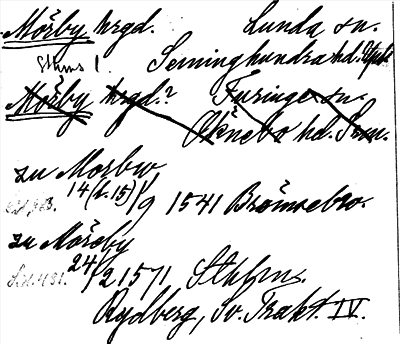 Mörby hrgd. Lunda sn.
Sthms l. Seminghundra hd. Uppl.
Mörby hrgd.? Turinge sn.
Öknebo hd. Srm.
zu Morbw
14 (o. 15)/9 1541 Brömsebro.
zu Mörby
24/2 1571 Sthlm.
Rydberg, Sv. Trakt. IV.